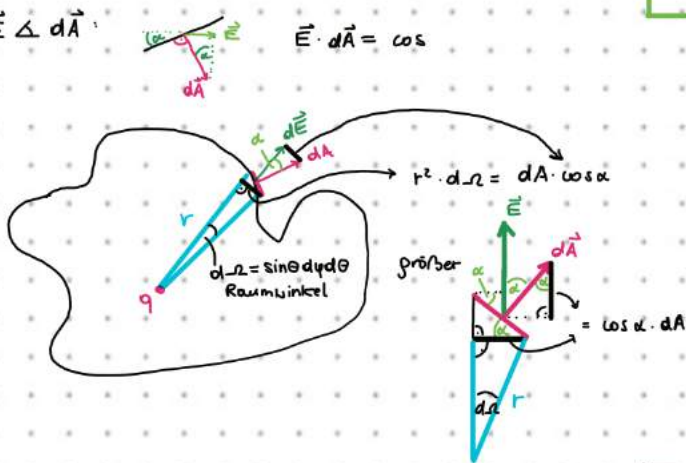 E⃗ ∡ dA⃗ :
α E⃗
α
dA⃗
E⃗ · dA⃗ = cos
dE⃗
α
dA
r² · dΩ = dA · cosα
r
dΩ = sinθdφdθ
Raumwinkel
q
größer
E⃗
dA⃗
α α α
α
= cosα · dA
dΩ r